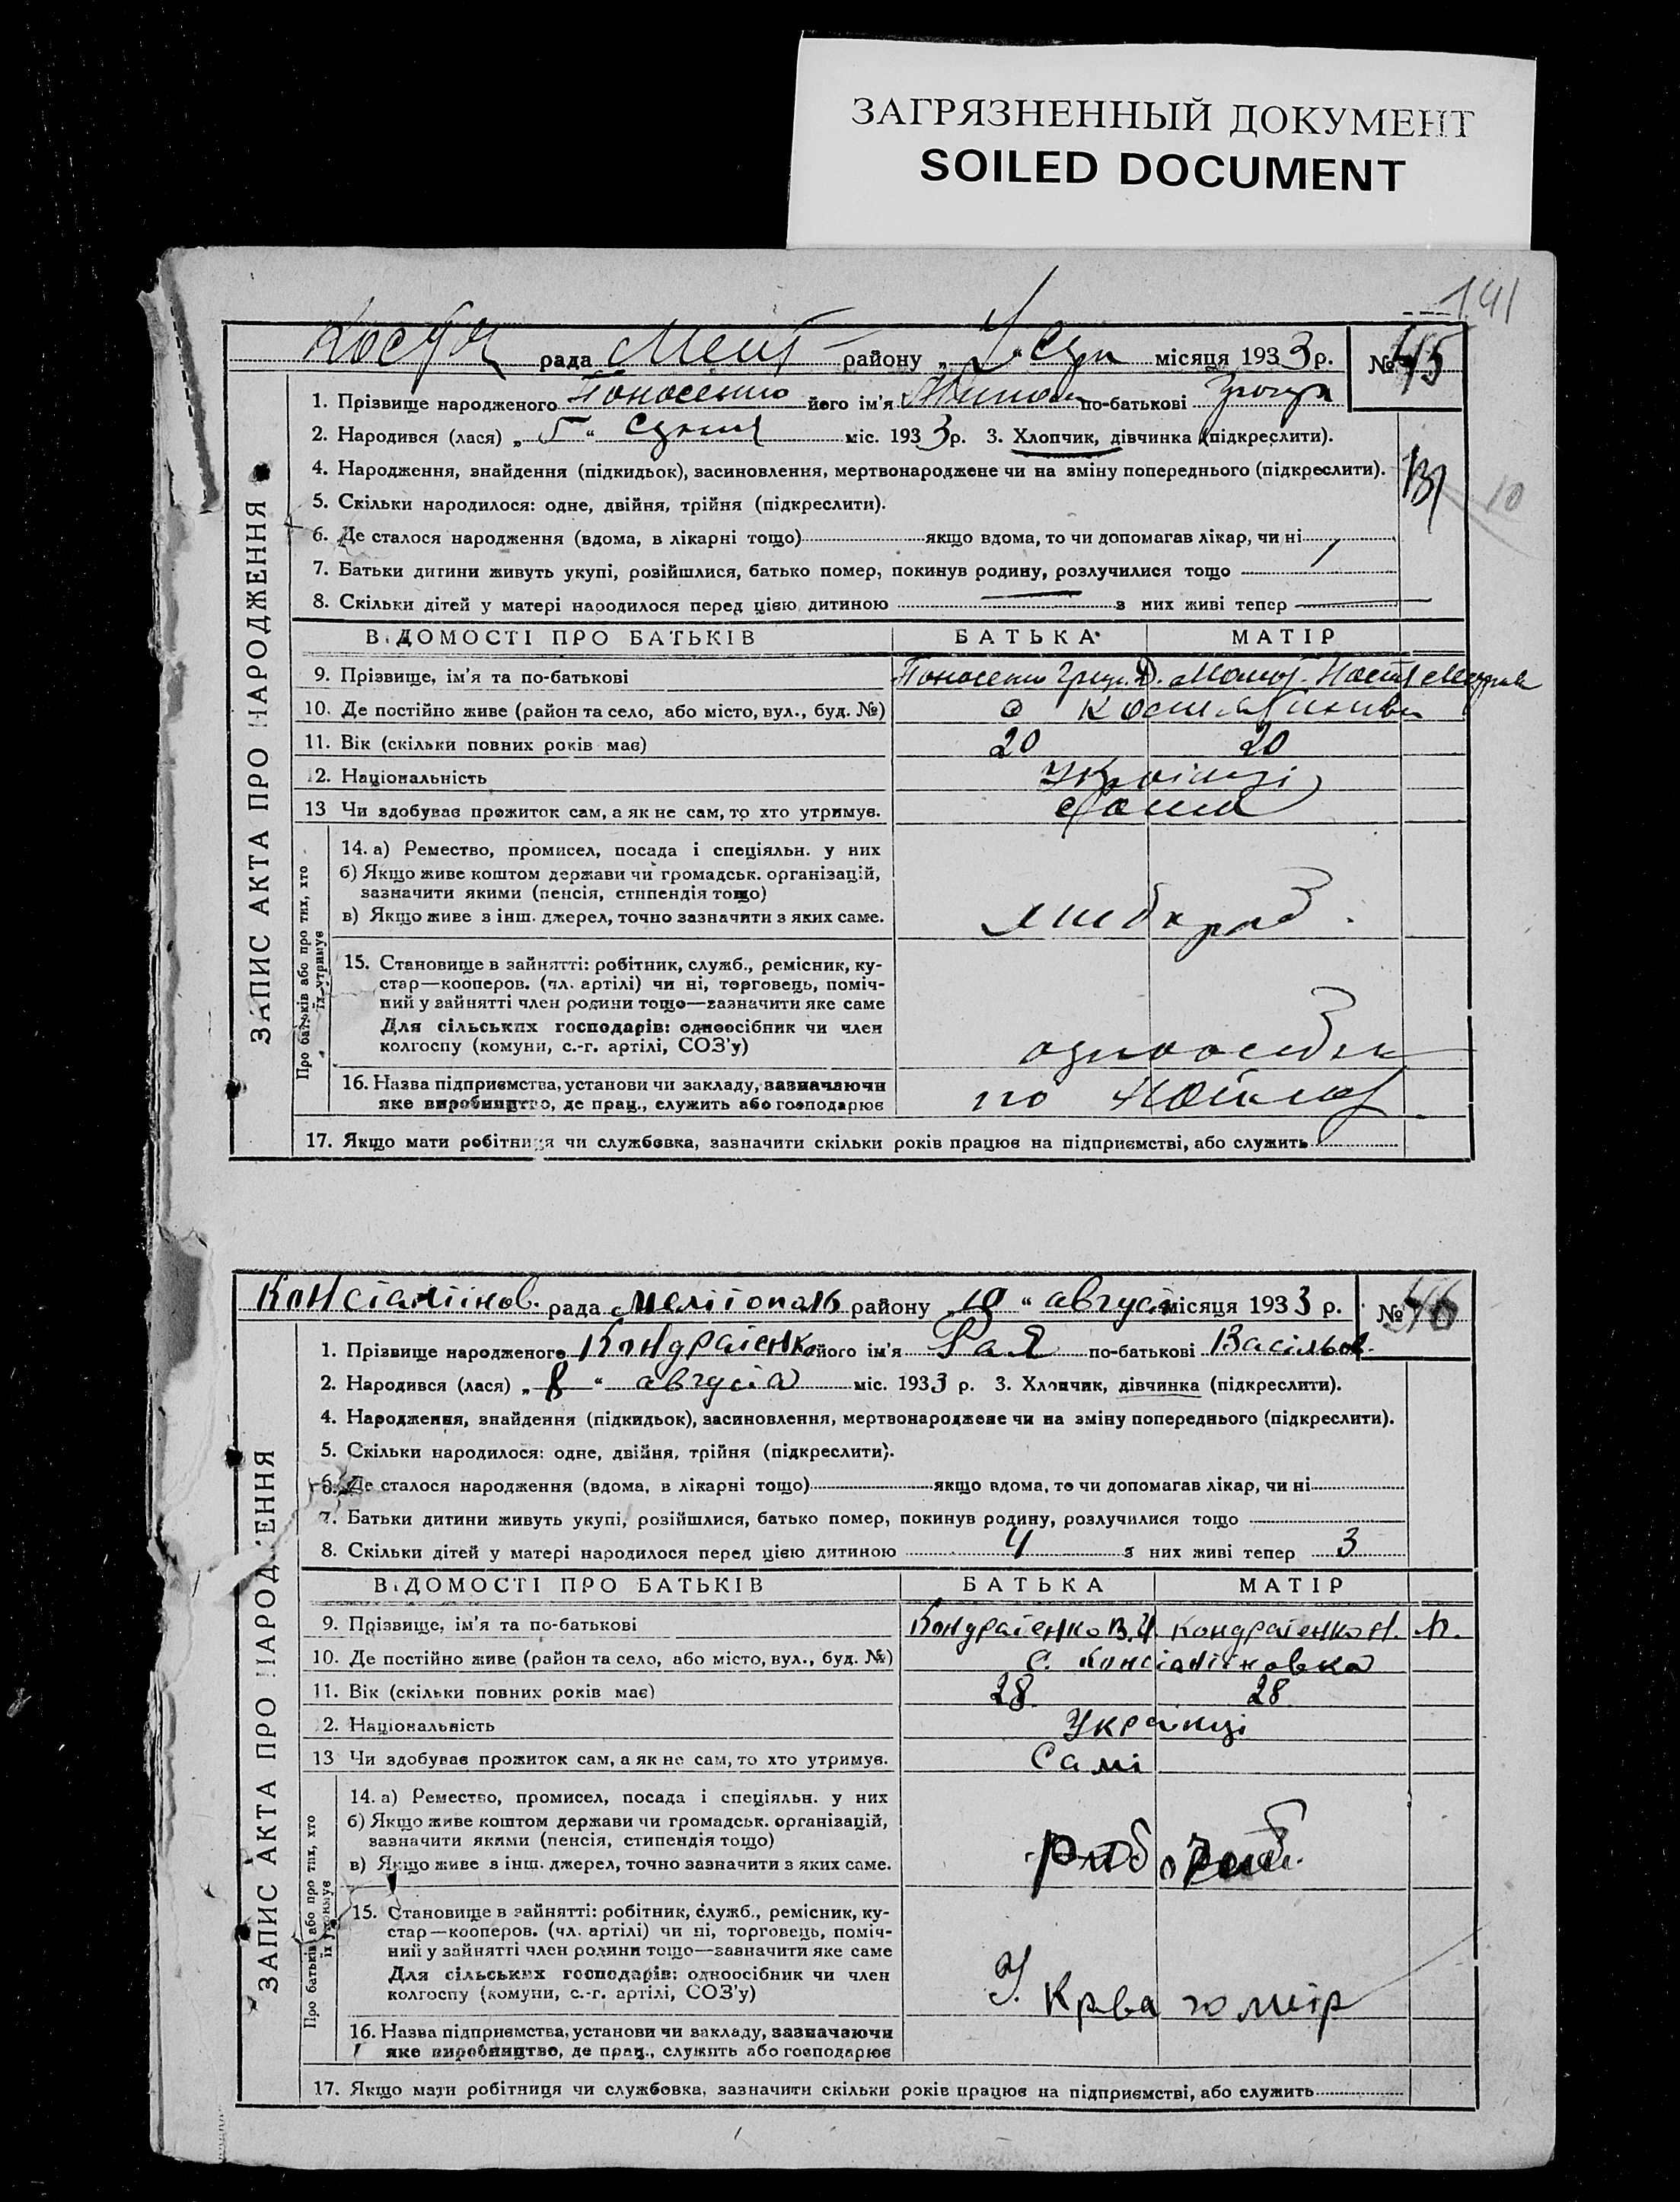 ЗАГРЯЗНЕННЫЙ ДОКУМЕНТ
SOILED DOCUMENT
141
рада Меліт району „ “ місяця 1933 р. № 45
1. Прізвище народженого його ім'я по-батькові
2. Народився (лася) „ 5 “ міс. 1933 р. 3. Хлопчик, дівчинка (підкреслити).
4. Народження, знайдення (підкидьок), засиновлення, мертвонароджене чи на зміну попереднього (підкреслити).
5. Скільки народилося: одне, двійня, трійня (підкреслити).
10
6. Де сталося народження (вдома, в лікарні тощо) якщо вдома, то чи допомагав лікар, чи ні
7. Батьки дитини живуть укупі, розійшлися, батько помер, покинув родину, розлучилися тощо
8. Скільки дітей у матері народилося перед цією дитиною з них живі тепер
ВІДОМОСТІ ПРО БАТЬКІВ БАТЬКА МАТІР
9. Прізвище, ім'я та по-батькові
10. Де постійно живе (район та село, або місто, вул., буд. №)
11. Вік (скільки повних років має) 20 20
12. Національність Українці
13 Чи здобуває прожиток сам, а як не сам, то хто утримує.
14. а) Ремество, промисел, посада і спеціяльн. у них
б) Якщо живе коштом держави чи громадськ. організацій,
зазначити якими (пенсія, стипендія тощо)
в) Якщо живе з інш. джерел, точно зазначити з яких саме.
15. Становище в зайнятті: робітник, служб., ремісник, ку-
стар—кооперов. (чл. артілі) чи ні, торговець, поміч-
ний у зайнятті член родини тощо—зазначити яке саме
Для сільських господарів: одноосібник чи член
колгоспу (комуни, с.-г. артілі, СОЗ'у)
16. Назва підприємства, установи чи закладу, зазначаючи
яке виробництво, де прац., служить або господарює
17. Якщо мати робітниця чи службовка, зазначити скільки років працює на підприємстві, або служить
ЗАПИС АКТА ПРО НАРОДЖЕННЯ
Про батьків або про тих, хто
їх утримує
Константінов. рада Мелітополь району „ 10 “ август місяця 1933 р. № 46
1. Прізвище народженого Кондратенко його ім'я Рая по-батькові Васільов.
2. Народився (лася) „ 8 “ августа міс. 1933 р. 3. Хлопчик, дівчинка (підкреслити).
4. Народження, знайдення (підкидьок), засиновлення, мертвонароджене чи на зміну попереднього (підкреслити).
5. Скільки народилося: одне, двійня, трійня (підкреслити).
6. Де сталося народження (вдома, в лікарні тощо) якщо вдома, то чи допомагав лікар, чи ні
7. Батьки дитини живуть укупі, розійшлися, батько помер, покинув родину, розлучилися тощо
8. Скільки дітей у матері народилося перед цією дитиною 4 з них живі тепер 3
ВІДОМОСТІ ПРО БАТЬКІВ БАТЬКА МАТІР
9. Прізвище, ім'я та по-батькові Кондратенко В. Кондратенко Н.
10. Де постійно живе (район та село, або місто, вул., буд. №) с. Константіновка
11. Вік (скільки повних років має) 28 28
12. Національність Українці
13 Чи здобуває прожиток сам, а як не сам, то хто утримує. Самі
14. а) Ремество, промисел, посада і спеціяльн. у них
б) Якщо живе коштом держави чи громадськ. організацій,
зазначити якими (пенсія, стипендія тощо)
в) Якщо живе з інш. джерел, точно зазначити з яких саме.
15. Становище в зайнятті: робітник, служб., ремісник, ку-
стар—кооперов. (чл. артілі) чи ні, торговець, поміч-
ний у зайнятті член родини тощо—зазначити яке саме
Для сільських господарів: одноосібник чи член
колгоспу (комуни, с.-г. артілі, СОЗ'у)
16. Назва підприємства, установи чи закладу, зазначаючи
яке виробництво, де прац., служить або господарює
17. Якщо мати робітниця чи службовка, зазначити скільки років працює на підприємстві, або служить
ЗАПИС АКТА ПРО НАРОДЖЕННЯ
Про батьків або про тих, хто
їх утримує